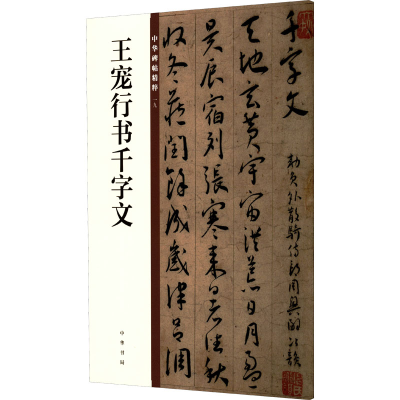 王宠行书千字文
中华书局
中华碑帖精粹 一九
千字文
勅員外散騎侍郎周興嗣次韻
天地玄黄宇宙洪荒日月盈
昃辰宿列張寒来暑往秋
收冬藏閏餘成歲律吕調